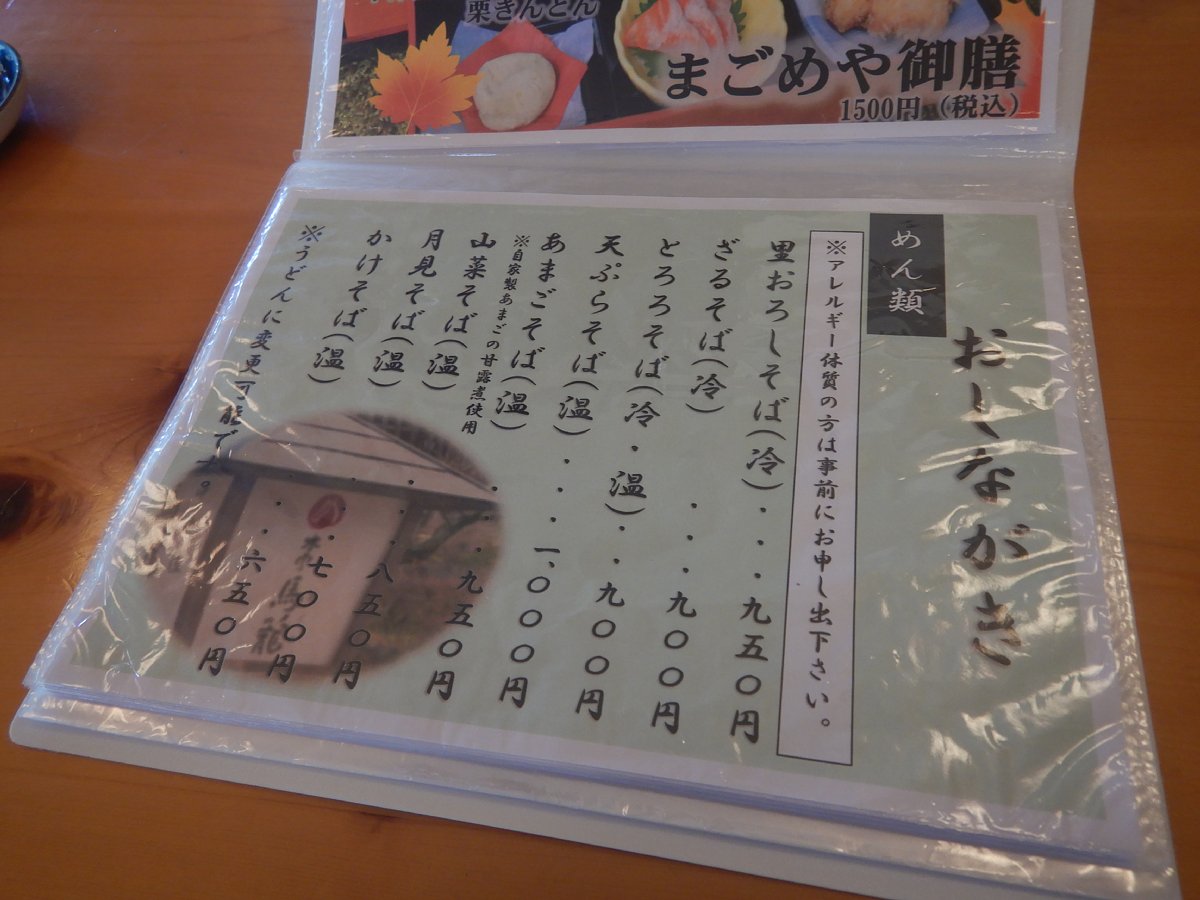 栗きんとん
まごめや御膳
1500円（税込）
おしながき
めん類
※アレルギー体質の方は事前にお申し出下さい。
里おろしそば(冷)・・・九五〇円
ざるそば(冷)・・・九〇〇円
とろろそば(冷・温)・・九〇〇円
天ぷらそば(温)・・・一、〇〇〇円
あまごそば(温)・・・九五〇円
※自家製あまごの甘露煮使用
山菜そば(温)・・・八五〇円
月見そば(温)・・・七〇〇円
かけそば(温)・・・六五〇円
※うどんに変更可能です。
馬籠